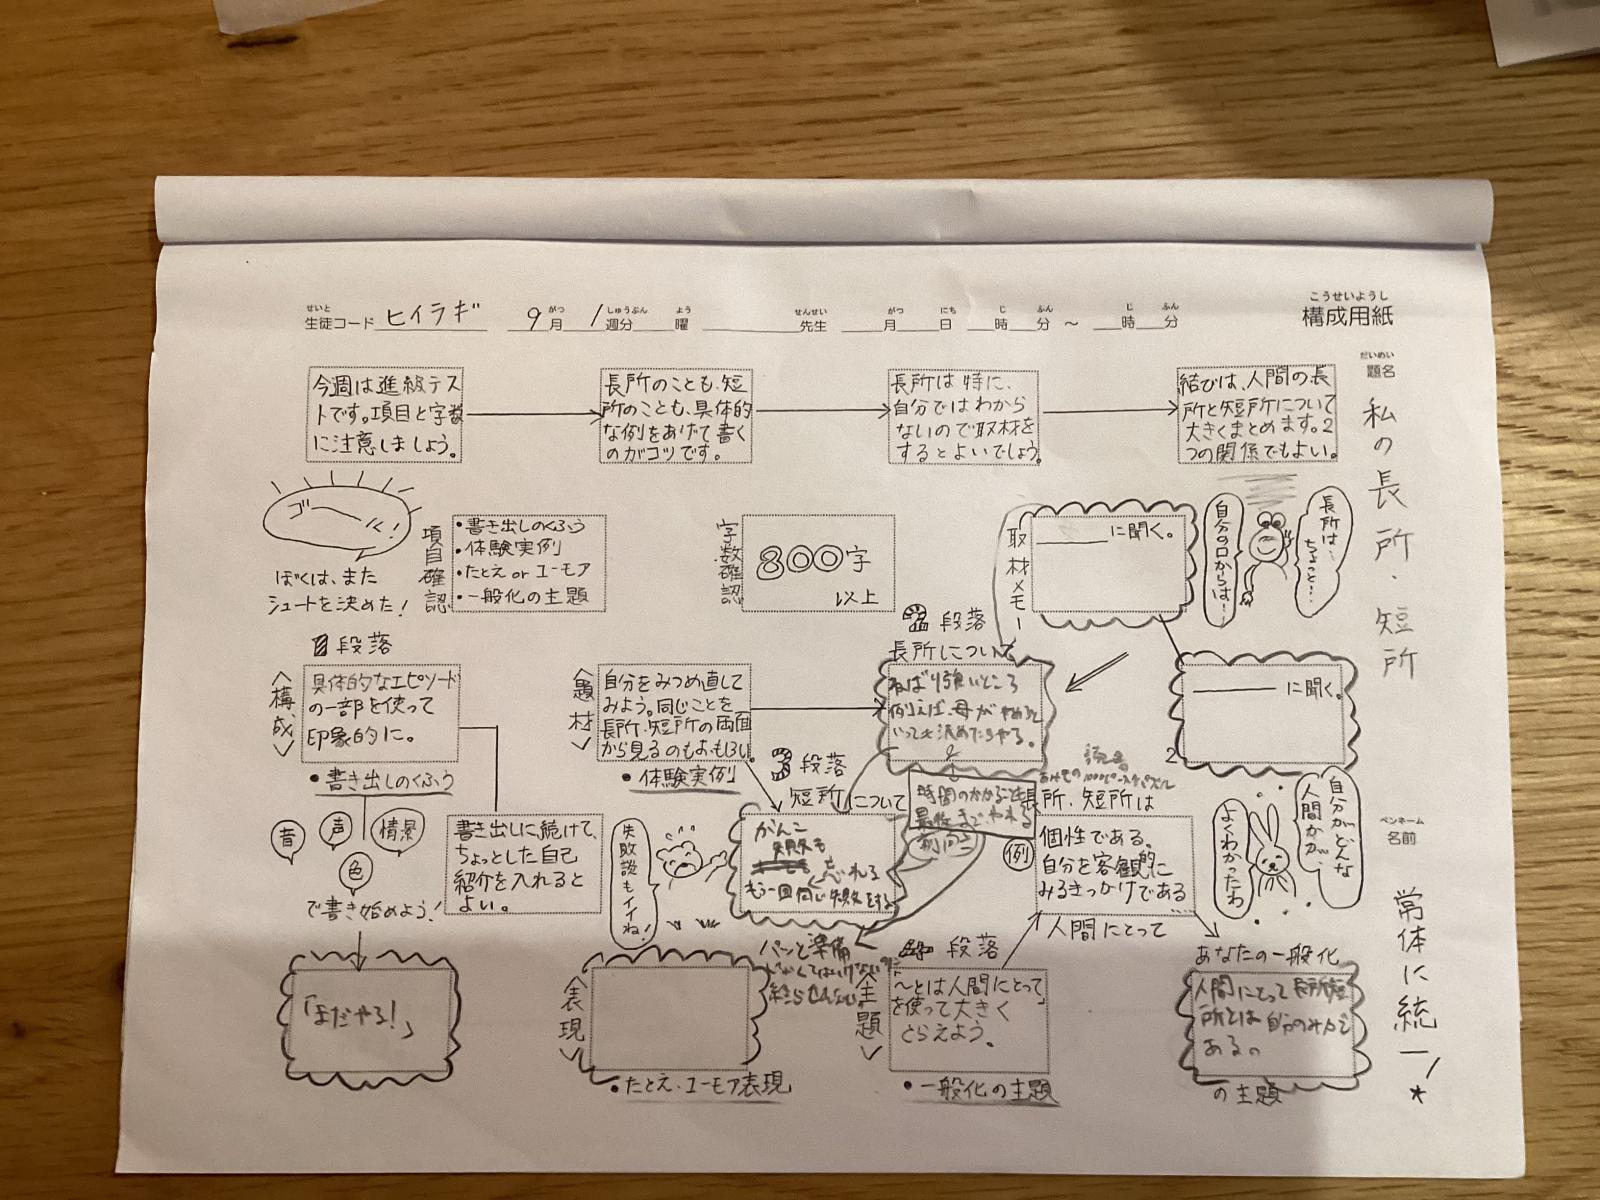 こうせいようし
構成用紙
せいと
生徒コード ヒイラギ
がつ しゅうぶん よう
9月 1週分 曜
せんせい
先生
がつ にち じ ふん じ ふん
月 日 時 分 ～ 時 分
だいめい
題名
私の長所・短所
ペンネーム
名前
常体に統一！*
今週は進級テス
トです。項目と字数
に注意しましょう。
長所のことも、短
所のことも、具体的
な例をあげて書く
のがコツです。
長所は特に、
自分ではわから
ないので取材を
するとよいでしょう。
結びは、人間の長
所と短所について
大きくまとめます。2
つの関係でもよい。
ゴール！
ぼくは、また
シュートを決めた！
項目確認
・書き出しのくふう
・体験実例
・たとえ or ユーモア
・一般化の主題
字数確認
800字
以上
取材メモ
に聞く。
自分の口からは…
長所は…
ちょっと…
に聞く。
2
1段落
〈構成〉
具体的なエピソード
の一部を使って
印象的に。
・書き出しのくふう
音
声
情景
色
で書き始めよう！
書き出しに続けて、
ちょっとした自己
紹介を入れると
よい。
「まだやる！」
〈題材〉
自分をみつめ直して
みよう。同じことを
長所・短所の両面
から見るのもおもしろい。
・体験実例
2段落
長所について
ねばり強いところ
例えば、母がやめろと
いっても決めたらやる。
時間のかかることも
最後までやれる
3段落
短所について
がんこ
失敗も
忘れる
もう一回同じ失敗をする
失敗談もイイね！
〈表現〉
・たとえ・ユーモア表現
4段落
〈主題〉
「～とは人間にとって」
を使って大きく
とらえよう。
・一般化の主題
長所・短所は
例
個性である。
自分を客観的に
みるきっかけである
…
人間にとって
自分がどんな
人間かが、
よくわかったわ
あなたの一般化
人間にとって長所短
所とは自分のみかた
である。
の主題